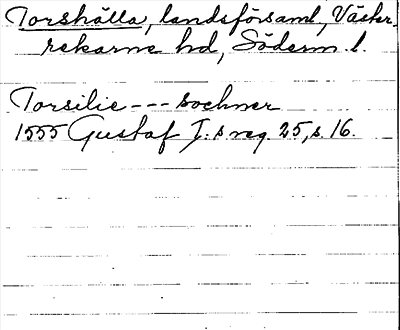 Torshälla, landsförsaml, Väster-
rekarne hd, Söderm. l.
Torsilie --- sochner
1555 Gustaf I:s reg. 25, s. 16.